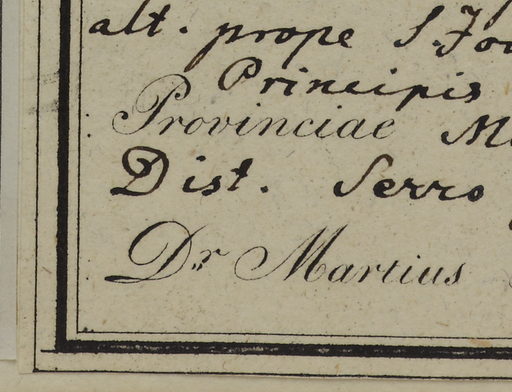 alt. prope S.
Principis
Provinciae
Dist. Serro
Dr. Martius